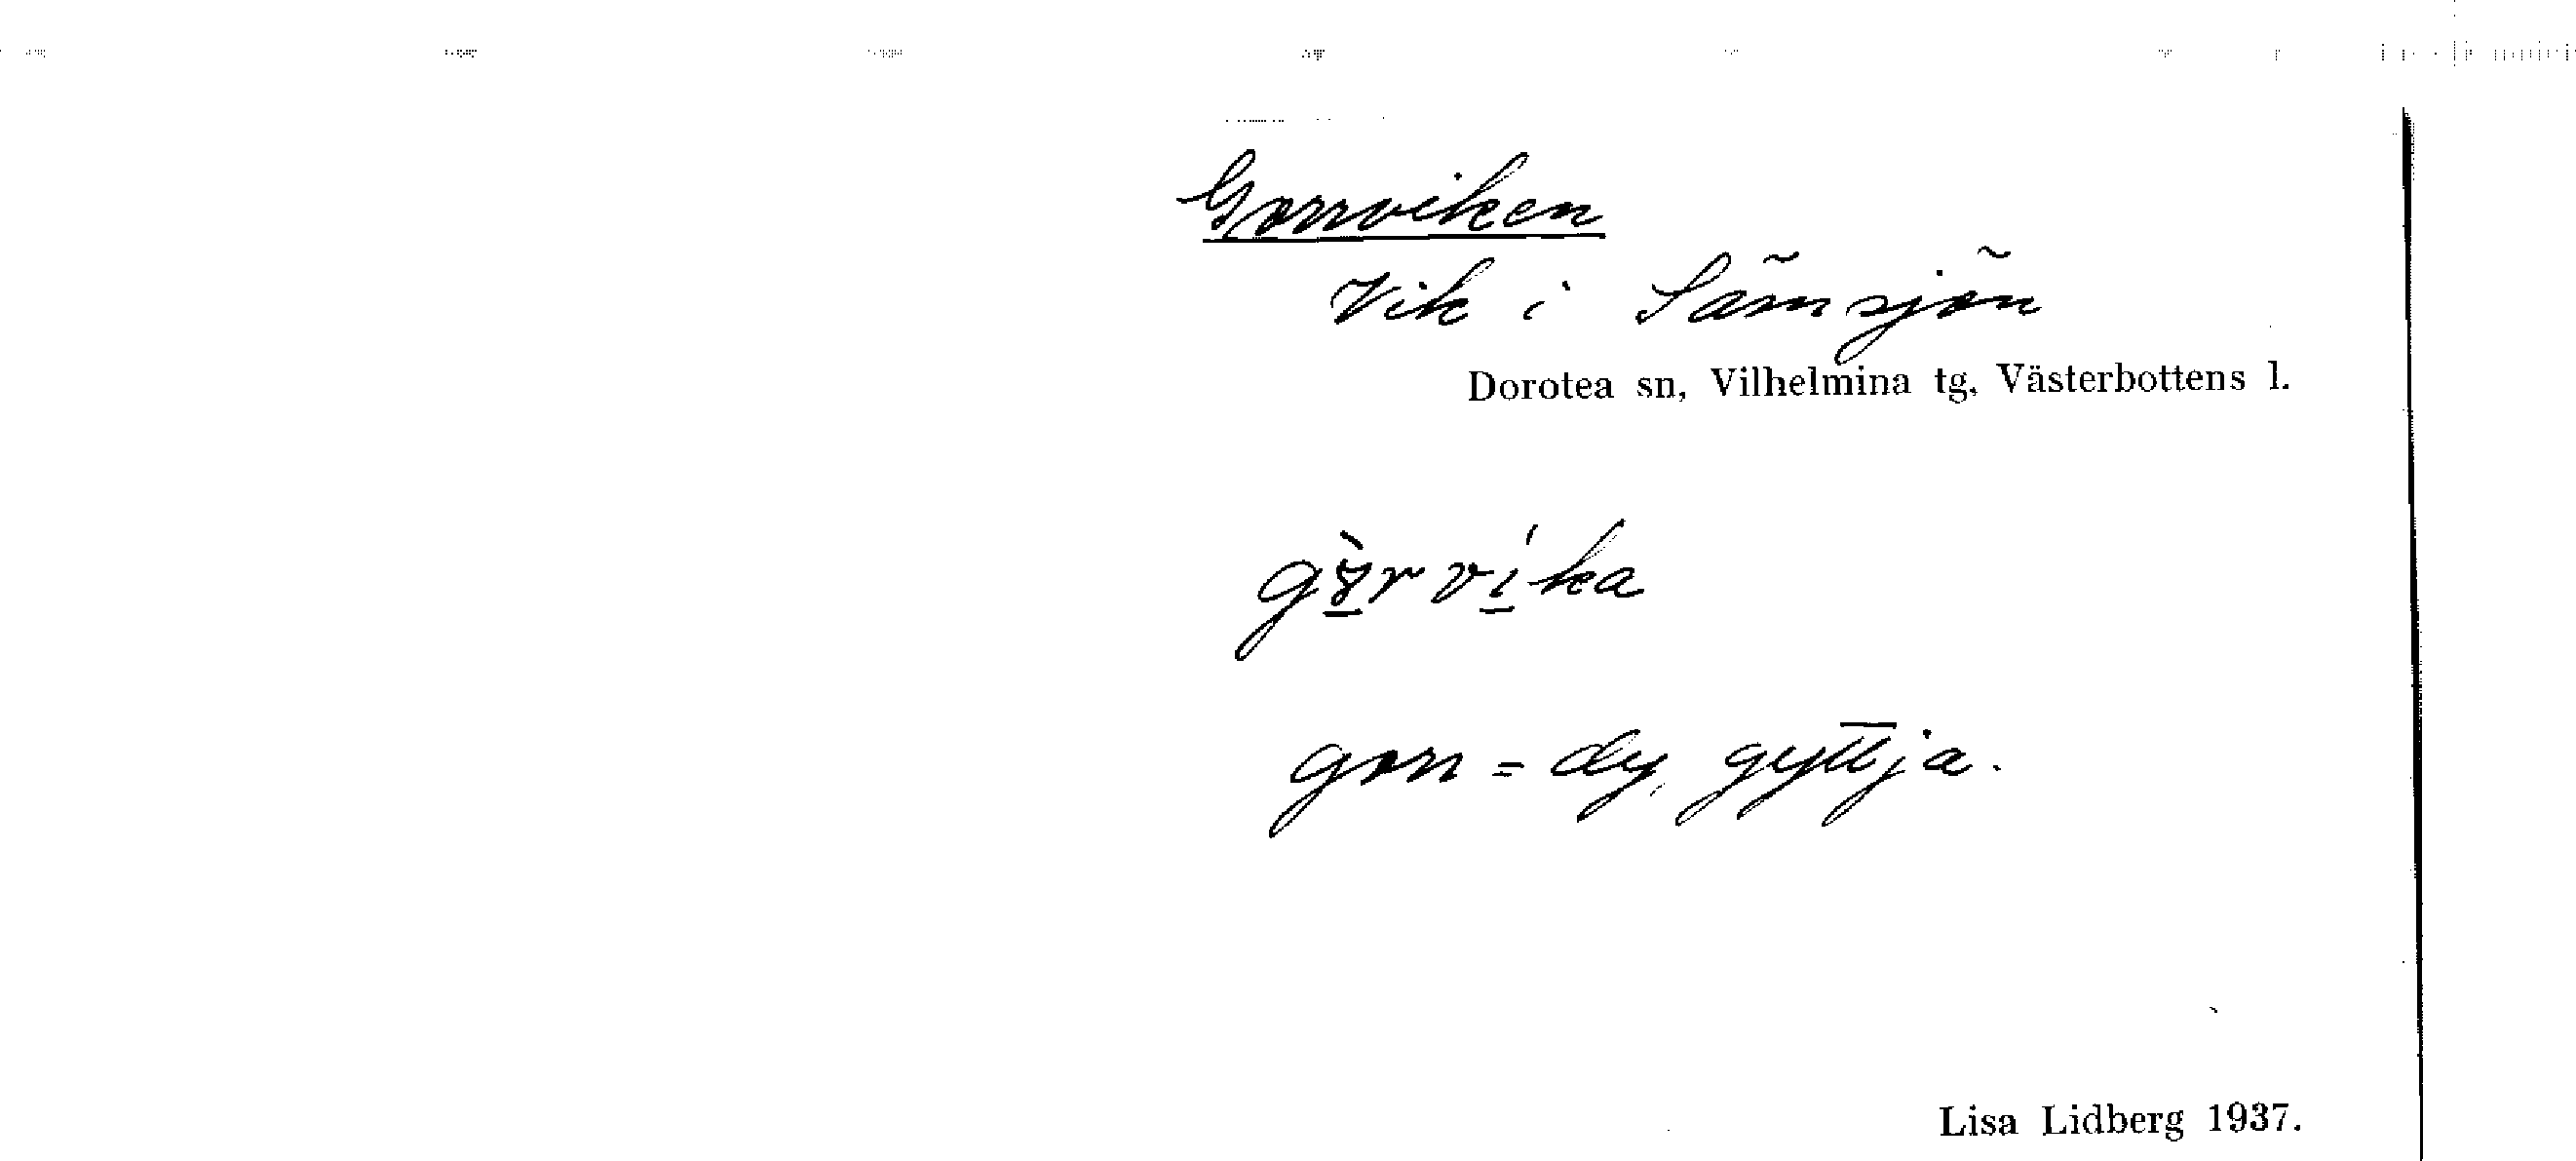 Gorrviken
Vik i Sämsjön
Dorotea sn, Vilhelmina tg, Västerbottens l.
gorr = dy, gyttja.
Lisa Lidberg 1937.